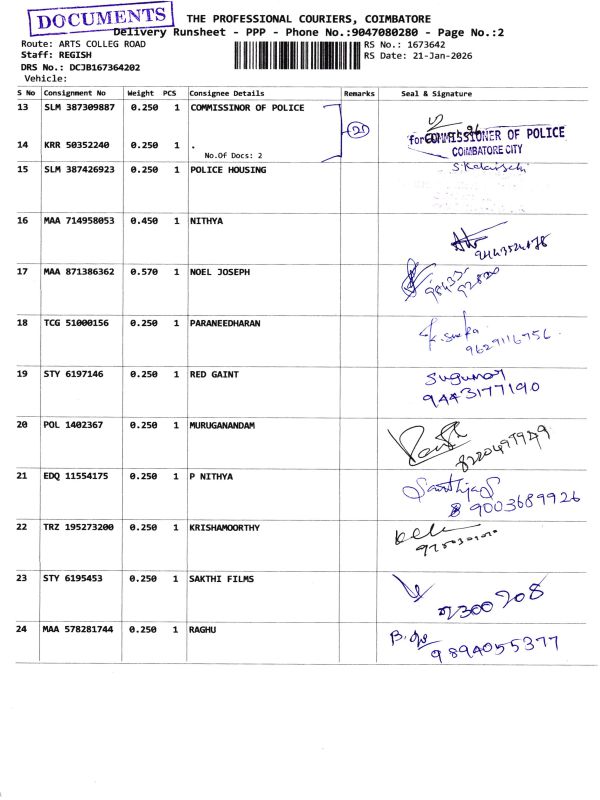 DOCUMENTS
THE PROFESSIONAL COURIERS, COIMBATORE
Delivery Runsheet - PPP - Phone No.:9047080280 - Page No.:2
Route: ARTS COLLEG ROAD
Staff: REGISH
DRS No.: DCJB167364202
Vehicle:
RS No.: 1673642
RS Date: 21-Jan-2026
S No Consignment No Weight PCS Consignee Details Remarks Seal & Signature
13 SLM 387309887 0.250 1 COMMISSINOR OF POLICE
14 KRR 50352240 0.250 1 .
No.Of Docs: 2
for COMMISSIONER OF POLICE
COIMBATORE CITY
15 SLM 387426923 0.250 1 POLICE HOUSING
16 MAA 714958053 0.450 1 NITHYA
17 MAA 871386362 0.570 1 NOEL JOSEPH
18 TCG 51000156 0.250 1 PARANEEDHARAN
9627116756
19 STY 6197146 0.250 1 RED GAINT Sugumar
9443177190
20 POL 1402367 0.250 1 MURUGANANDAM
21 EDQ 11554175 0.250 1 P NITHYA
9003689926
22 TRZ 195273200 0.250 1 KRISHAMOORTHY
23 STY 6195453 0.250 1 SAKTHI FILMS
24 MAA 578281744 0.250 1 RAGHU
9894055377